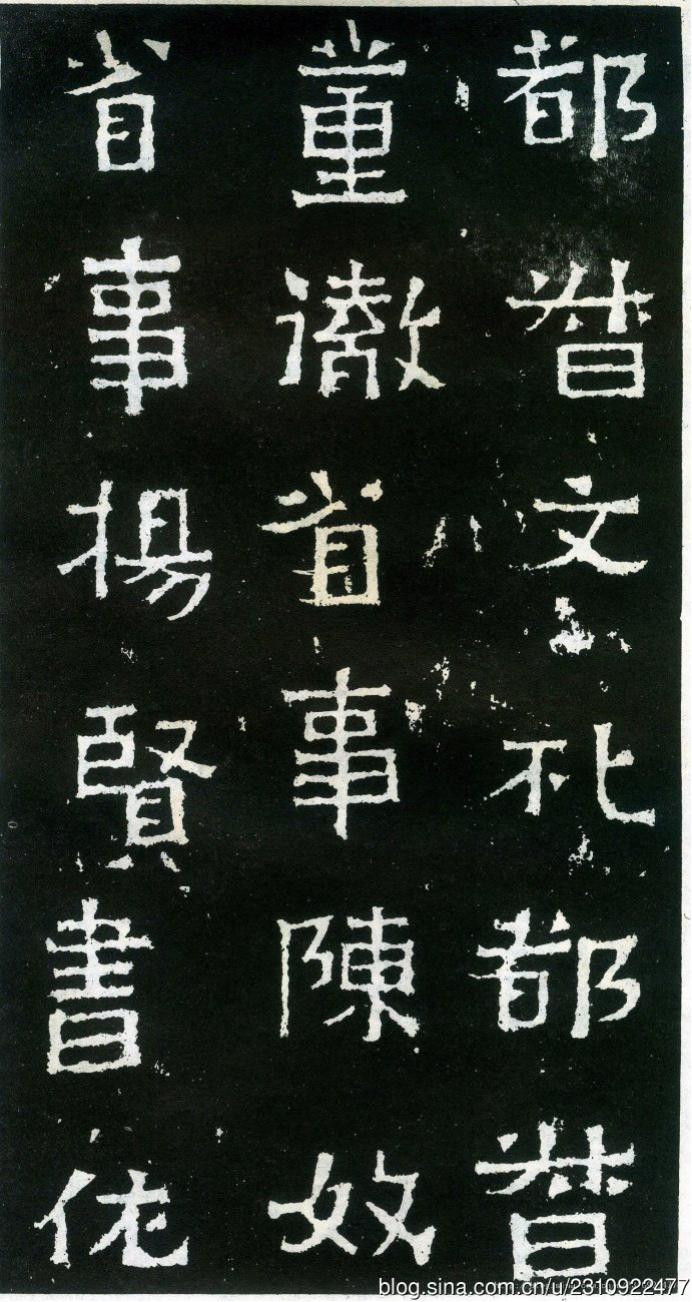 都督文礼都督
董徹省事陳奴
省事揚賢書佐
blog.sina.com.cn/u/2310922477